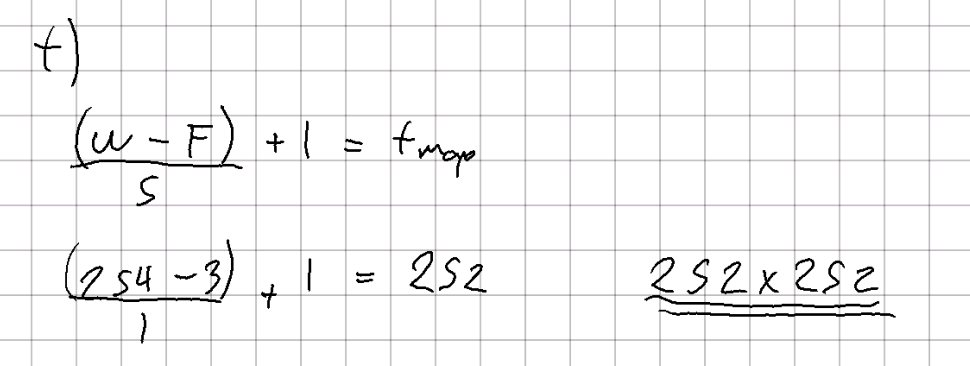 f)
(W - F) / S + 1 = f map
(254 - 3) / 1 + 1 = 252 252 x 252